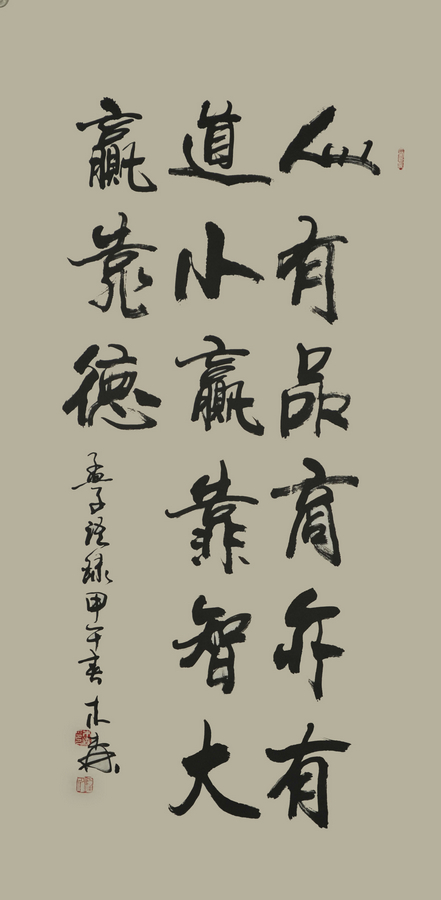 人有品商亦有
道小贏靠智大
贏靠德
孟子語録甲午春木森